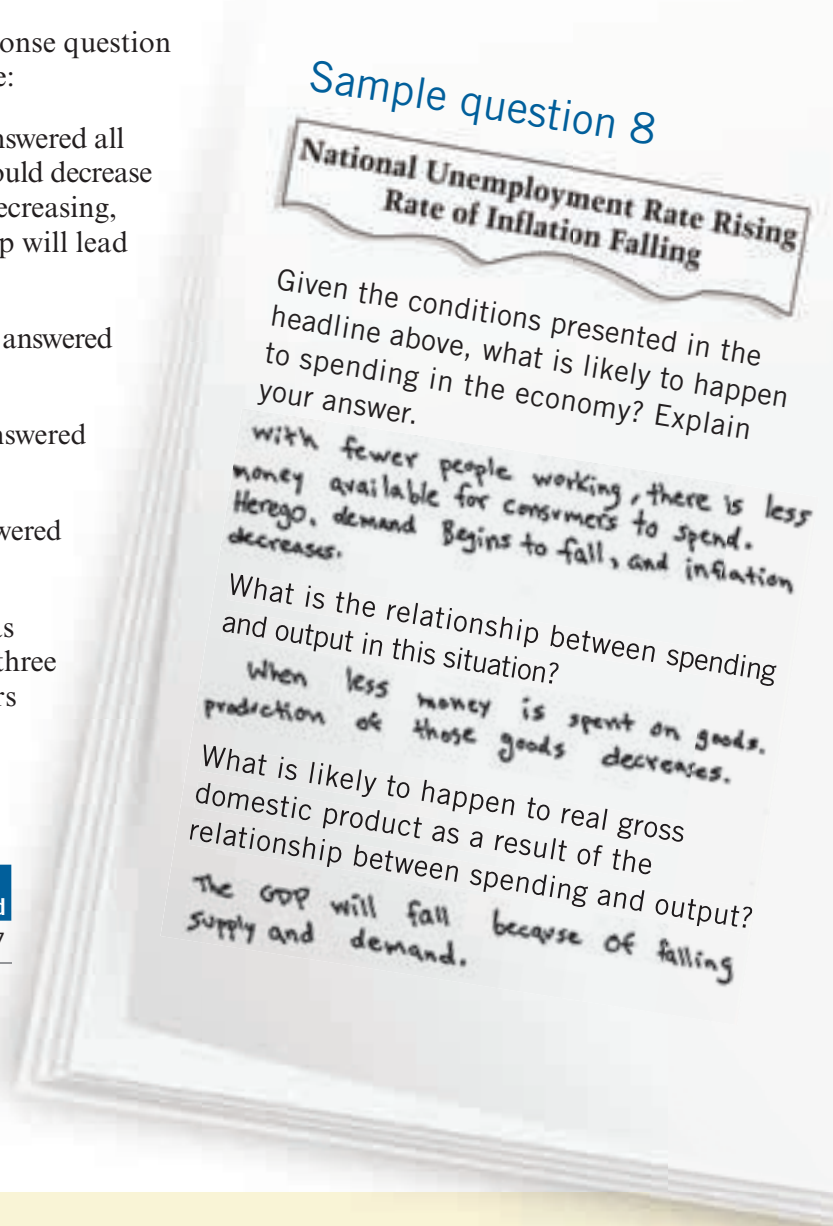 onse question
e:
nswered all
ould decrease
ecreasing,
p will lead
answered
nswered
wered
as
three
rs
d
7
Sample question 8
National Unemployment Rate Rising
Rate of Inflation Falling
Given the conditions presented in the
headline above, what is likely to happen
to spending in the economy? Explain
your answer.
with fewer people working, there is less
money available for consumers to spend.
Herego, demand Begins to fall, and inflation
decreases.
What is the relationship between spending
and output in this situation?
When less money is spent on goods.
production of those goods decreases.
What is likely to happen to real gross
domestic product as a result of the
relationship between spending and output?
The GDP will fall because of falling
supply and demand.